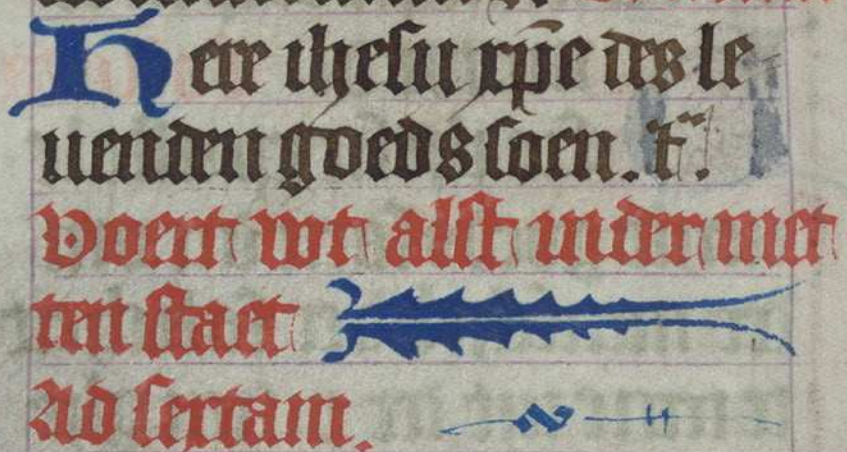 Here ihesu xp̄e des le
uenden goeds soen. t̄.
Voert wt alst inder met
ten staet
Ad sextam.